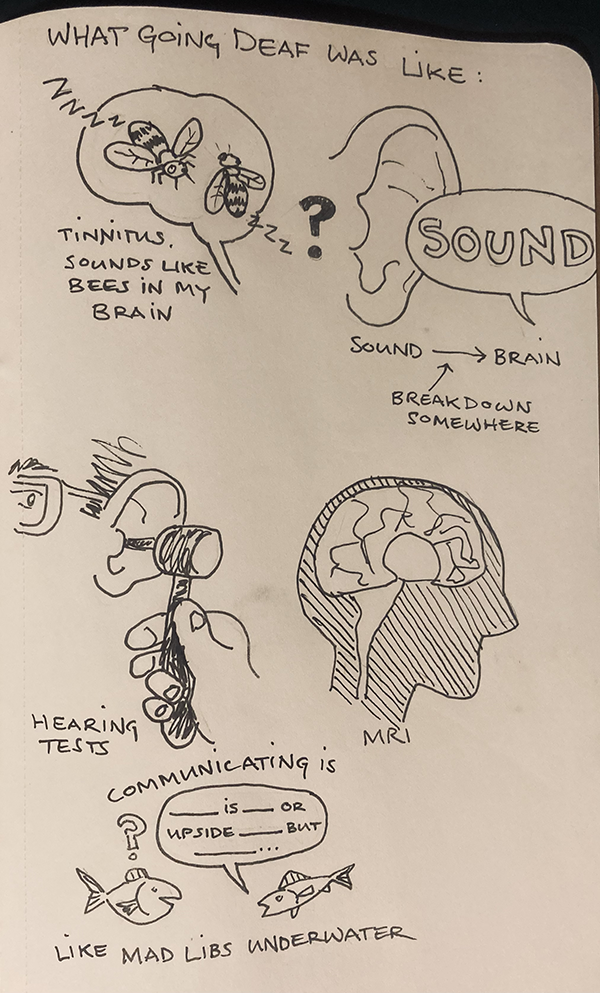 WHAT GOING DEAF WAS LIKE:
ZZZZZZ
ZZZZ
?
TINNITUS.
SOUNDS LIKE
BEES IN MY
BRAIN
SOUND
SOUND → BRAIN
BREAKDOWN
SOMEWHERE
HEARING
TESTS
MRI
COMMUNICATING IS
?
___ IS ___ OR
UPSIDE ___ BUT
___...
LIKE MAD LIBS UNDERWATER